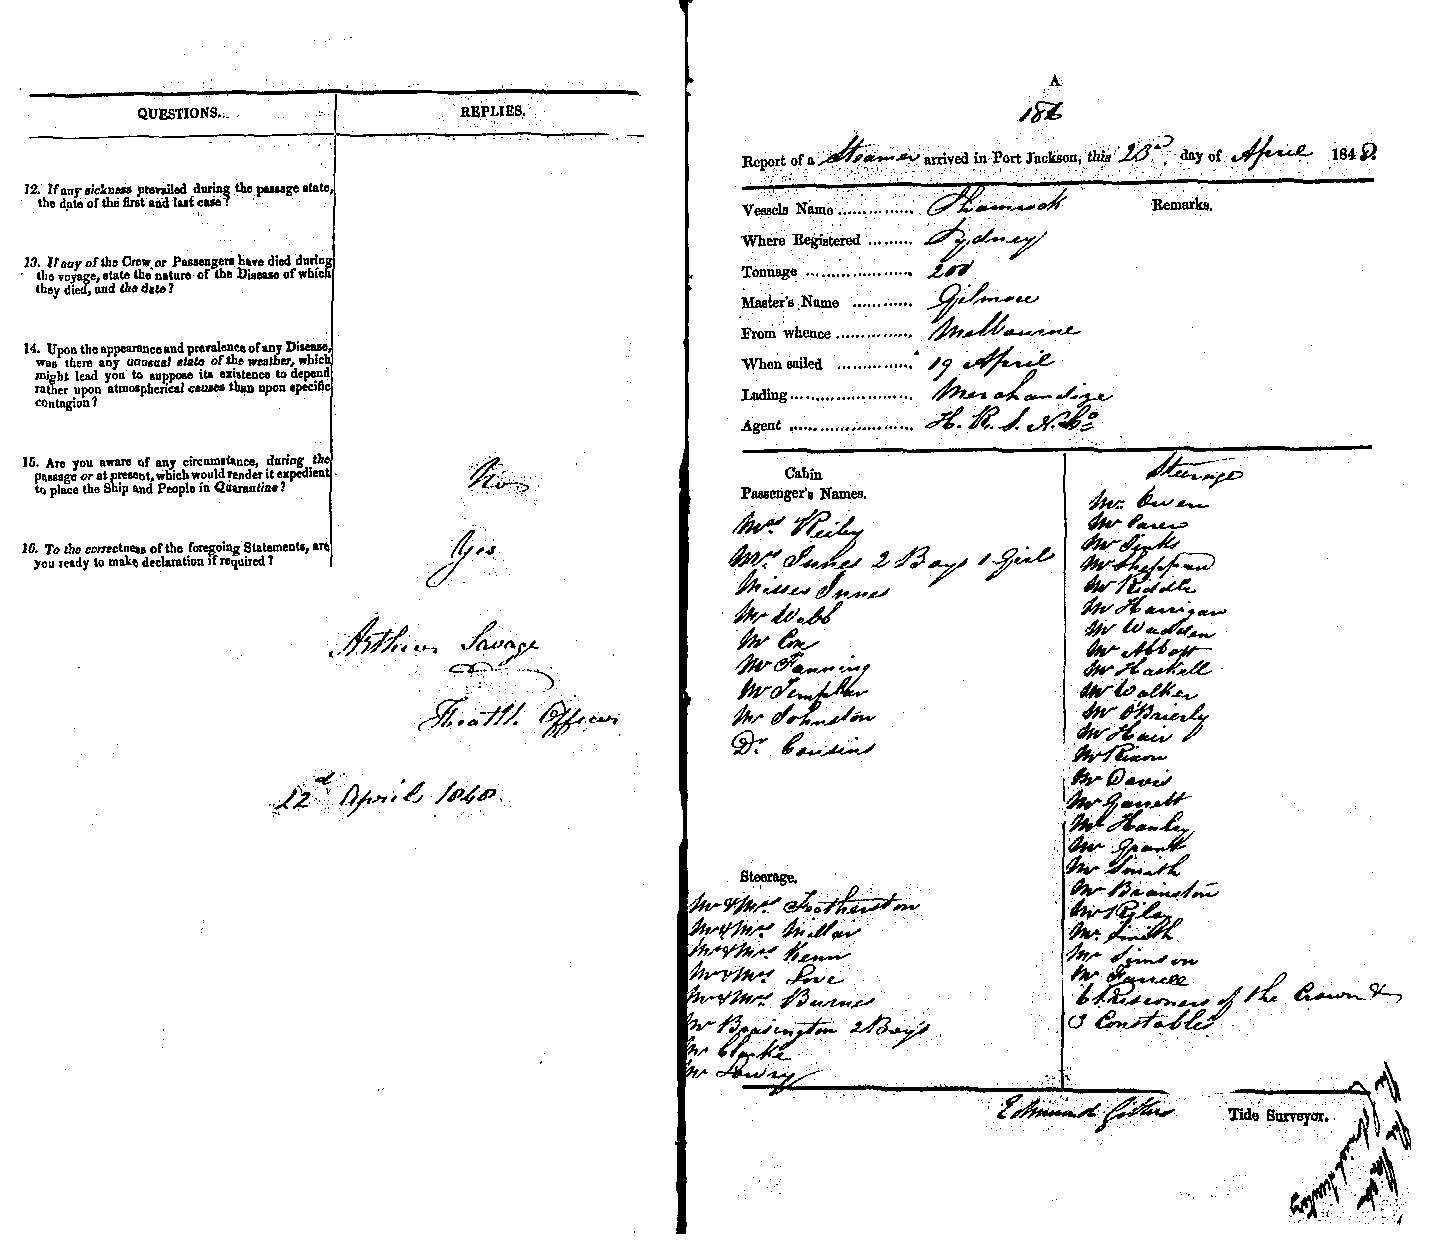 QUESTIONS.
REPLIES.
12. If any sickness prevailed during the passage state,
the date of the first and last case?
13. If any of the Crew or Passengers have died during
the voyage, state the nature of the Disease of which
they died, and the date?
14. Upon the appearance and prevalence of any Disease,
was there any unusual state of the weather, which
might lead you to suppose its existence to depend
rather upon atmospherical causes than upon specific
contagion?
15. Are you aware of any circumstance, during the
passage or at present, which would render it expedient
to place the Ship and People in Quarantine?
No
16. To the correctness of the foregoing Statements, are
you ready to make declaration if required?
Yes
Arthur Savage
Health Officer
22d April 1848.
A
Report of a Steamer arrived in Port Jackson, this 23d day of April 1848.
Vessels Name Shamrock
Remarks.
Where Registered Sydney
Tonnage 200
Master's Name Gilmore
From whence Melbourne
When sailed 19 April
Lading Merchandize
Agent H. R. S. N. Co
Cabin
Passenger's Names.
Mrs Reiley
Mrs Innes 2 Boys 1 Girl
Misses Innes
Mr Webb
Mr Cox
Mr Fanning
Mr Templar
Mr Johnston
Dr Cousins
Steerage.
Mr & Mrs Featherston
Mr & Mrs Millar
Mr & Mrs Kenn
Mr & Mrs Love
Mr & Mrs Burnes
Mr Brasington 2 Boys
Mr Clarke
Mr Lowry
Steerage
Mr Owen
Mr
Mr Jinks
Mr Sheppard
Mr Riddle
Mr Harrigan
Mr Wadden
Mr Abbott
Mr Haskell
Mr Walker
Mr O'Brierly
Mr Hair
Mr Rixon
Mr Davis
Mr Garrett
Mr Hanley
Mr Grant
Mr Smith
Mr Brainston
Mr
Mr Smith
Mr Simson
Mr Farrell
6 Prisoners of the Crown &
3 Constables
Edmund
Tide Surveyor.